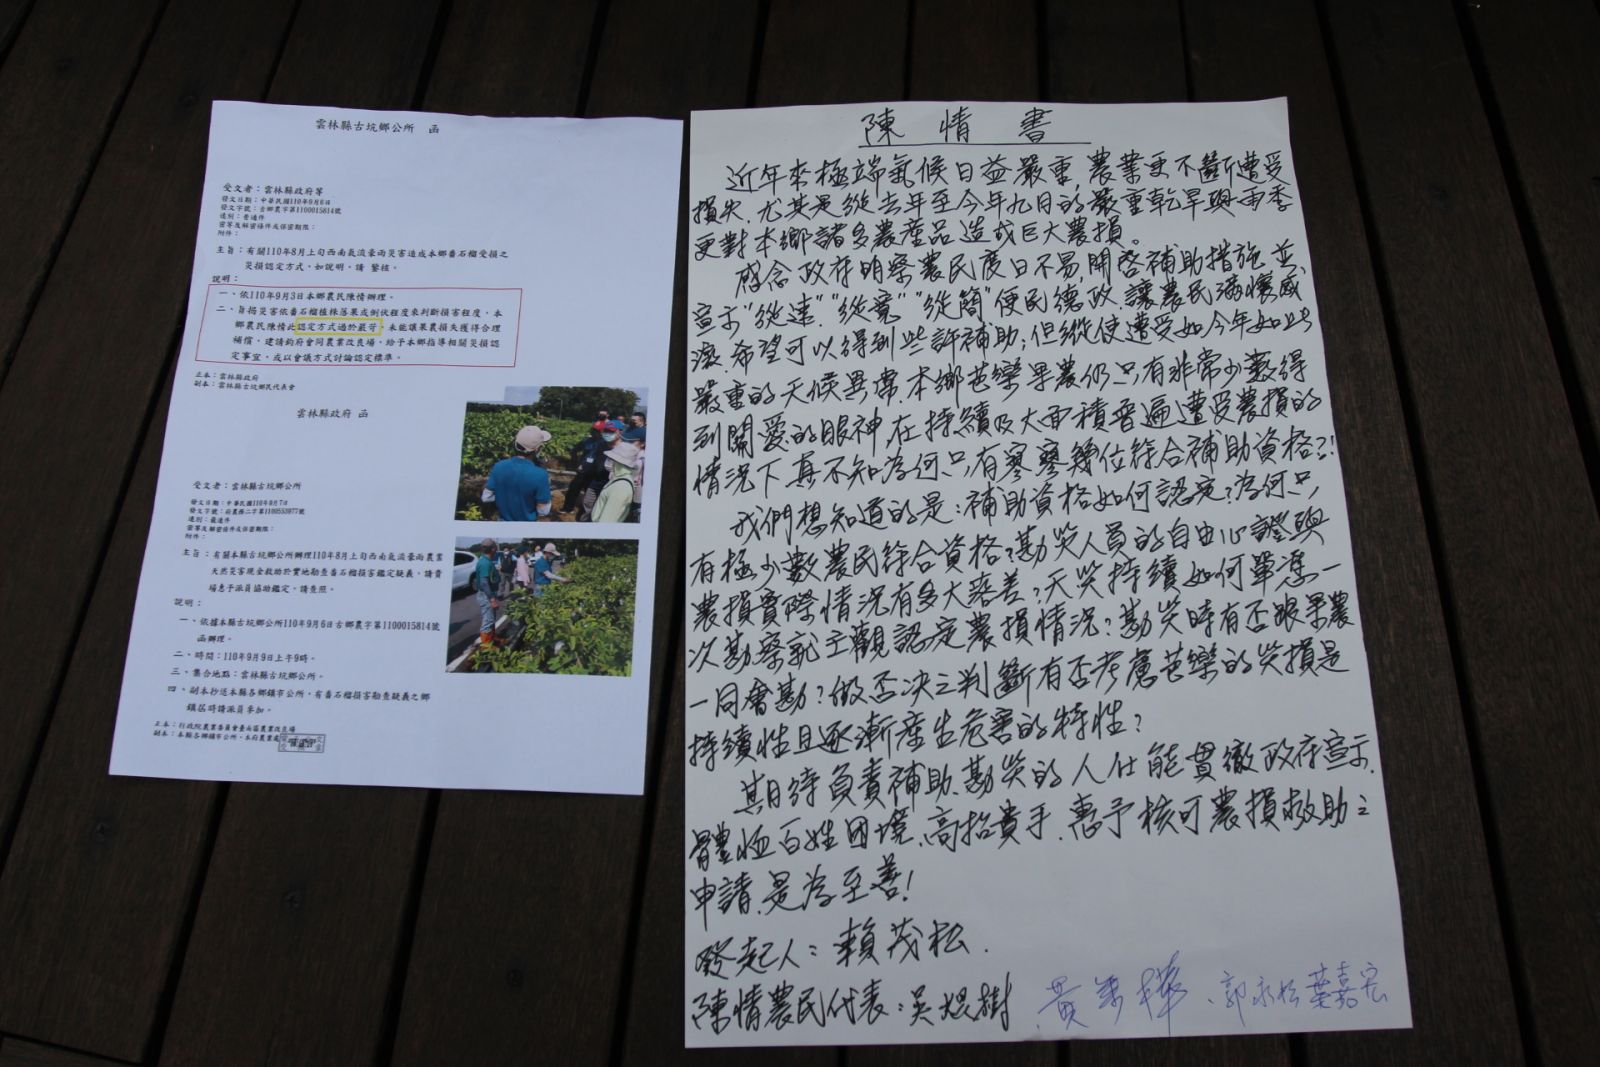 雲林縣古坑鄉公所 函
受文者：雲林縣政府等
發文日期：中華民國110年9月6日
發文字號：古鄉農字第1100015814號
速別：普通件
密等及解密條件或保密期限：
附件：
主旨：有關110年8月上旬西南氣流豪雨災害造成本鄉番石榴受損之
災損認定方式，如說明，請 鑒核。
說明：
一、依110年9月3日本鄉農民陳情辦理。
二、旨指災害依番石榴植株落果或倒伏程度來判斷損害程度，本
鄉農民陳情此認定方式過於嚴苛，未能讓果農損失獲得合理
補償，建請鈞府會同農業改良場，給予本鄉指導相關災損認
定事宜，或以會議方式討論認定標準。
正本：雲林縣政府
副本：雲林縣古坑鄉民代表會
雲林縣政府 函
受文者：雲林縣古坑鄉公所
發文日期：中華民國110年9月7日
發文字號：府農務二字第1100553977號
速別：最速件
密等及解密條件或保密期限：
附件：
主旨：有關本縣古坑鄉公所辦理110年8月上旬西南氣流豪雨農業
天然災害現金救助於實地勘查番石榴損害鑑定疑義，請貴
場惠予派員協助鑑定，請查照。
說明：
一、依據本縣古坑鄉公所110年9月6日古鄉農字第1100015814號
函辦理。
二、時間：110年9月9日上午9時。
三、集合地點：雲林縣古坑鄉公所。
四、副本抄送本縣各鄉鎮市公所，有番石榴損害勘查疑義之鄉
鎮屆時請派員參加。
正本：行政院農業委員會臺南區農業改良場
副本：本縣各鄉鎮市公所、本府農業處
陳情書
近年來極端氣候日益嚴重,農業更不斷遭受
損失.尤其是從去年至今年九月的嚴重乾旱與雨季
更對本鄉諸多農產品造成巨大農損。
感念政府明察農民度日不易,開啓補助措施並
宣示"從速""從寬""從簡"便民德政.讓農民滿懷感
激.希望可以得到些許補助;但縱使遭受如今年如此
嚴重的天候異常.本鄉芭樂果農仍只有非常少數得
到關愛的眼神.在持續及大面積普遍遭受農損的
情況下真不知為何只有寥寥幾位符合補助資格?!
我們想知道的是:補助資格如何認定?為何只
有極少數農民符合資格?勘災人員的自由心證與
農損實際情況有多大落差?天災持續如何單憑一
次勘察就主觀認定農損情況?勘災時有否跟果農
一同會勘?做否決之判斷有否考慮芭樂的災損是
持續性且逐漸產生危害的特性?
期待負責補助.勘災的人仕能貫徹政府宣示.
體恤百姓困境.高抬貴手.惠予核可農損救助之
申請.是為至善!
發起人:賴茂松.
陳情農民代表:吳焜樹 黃 郭永松 葉嘉宏